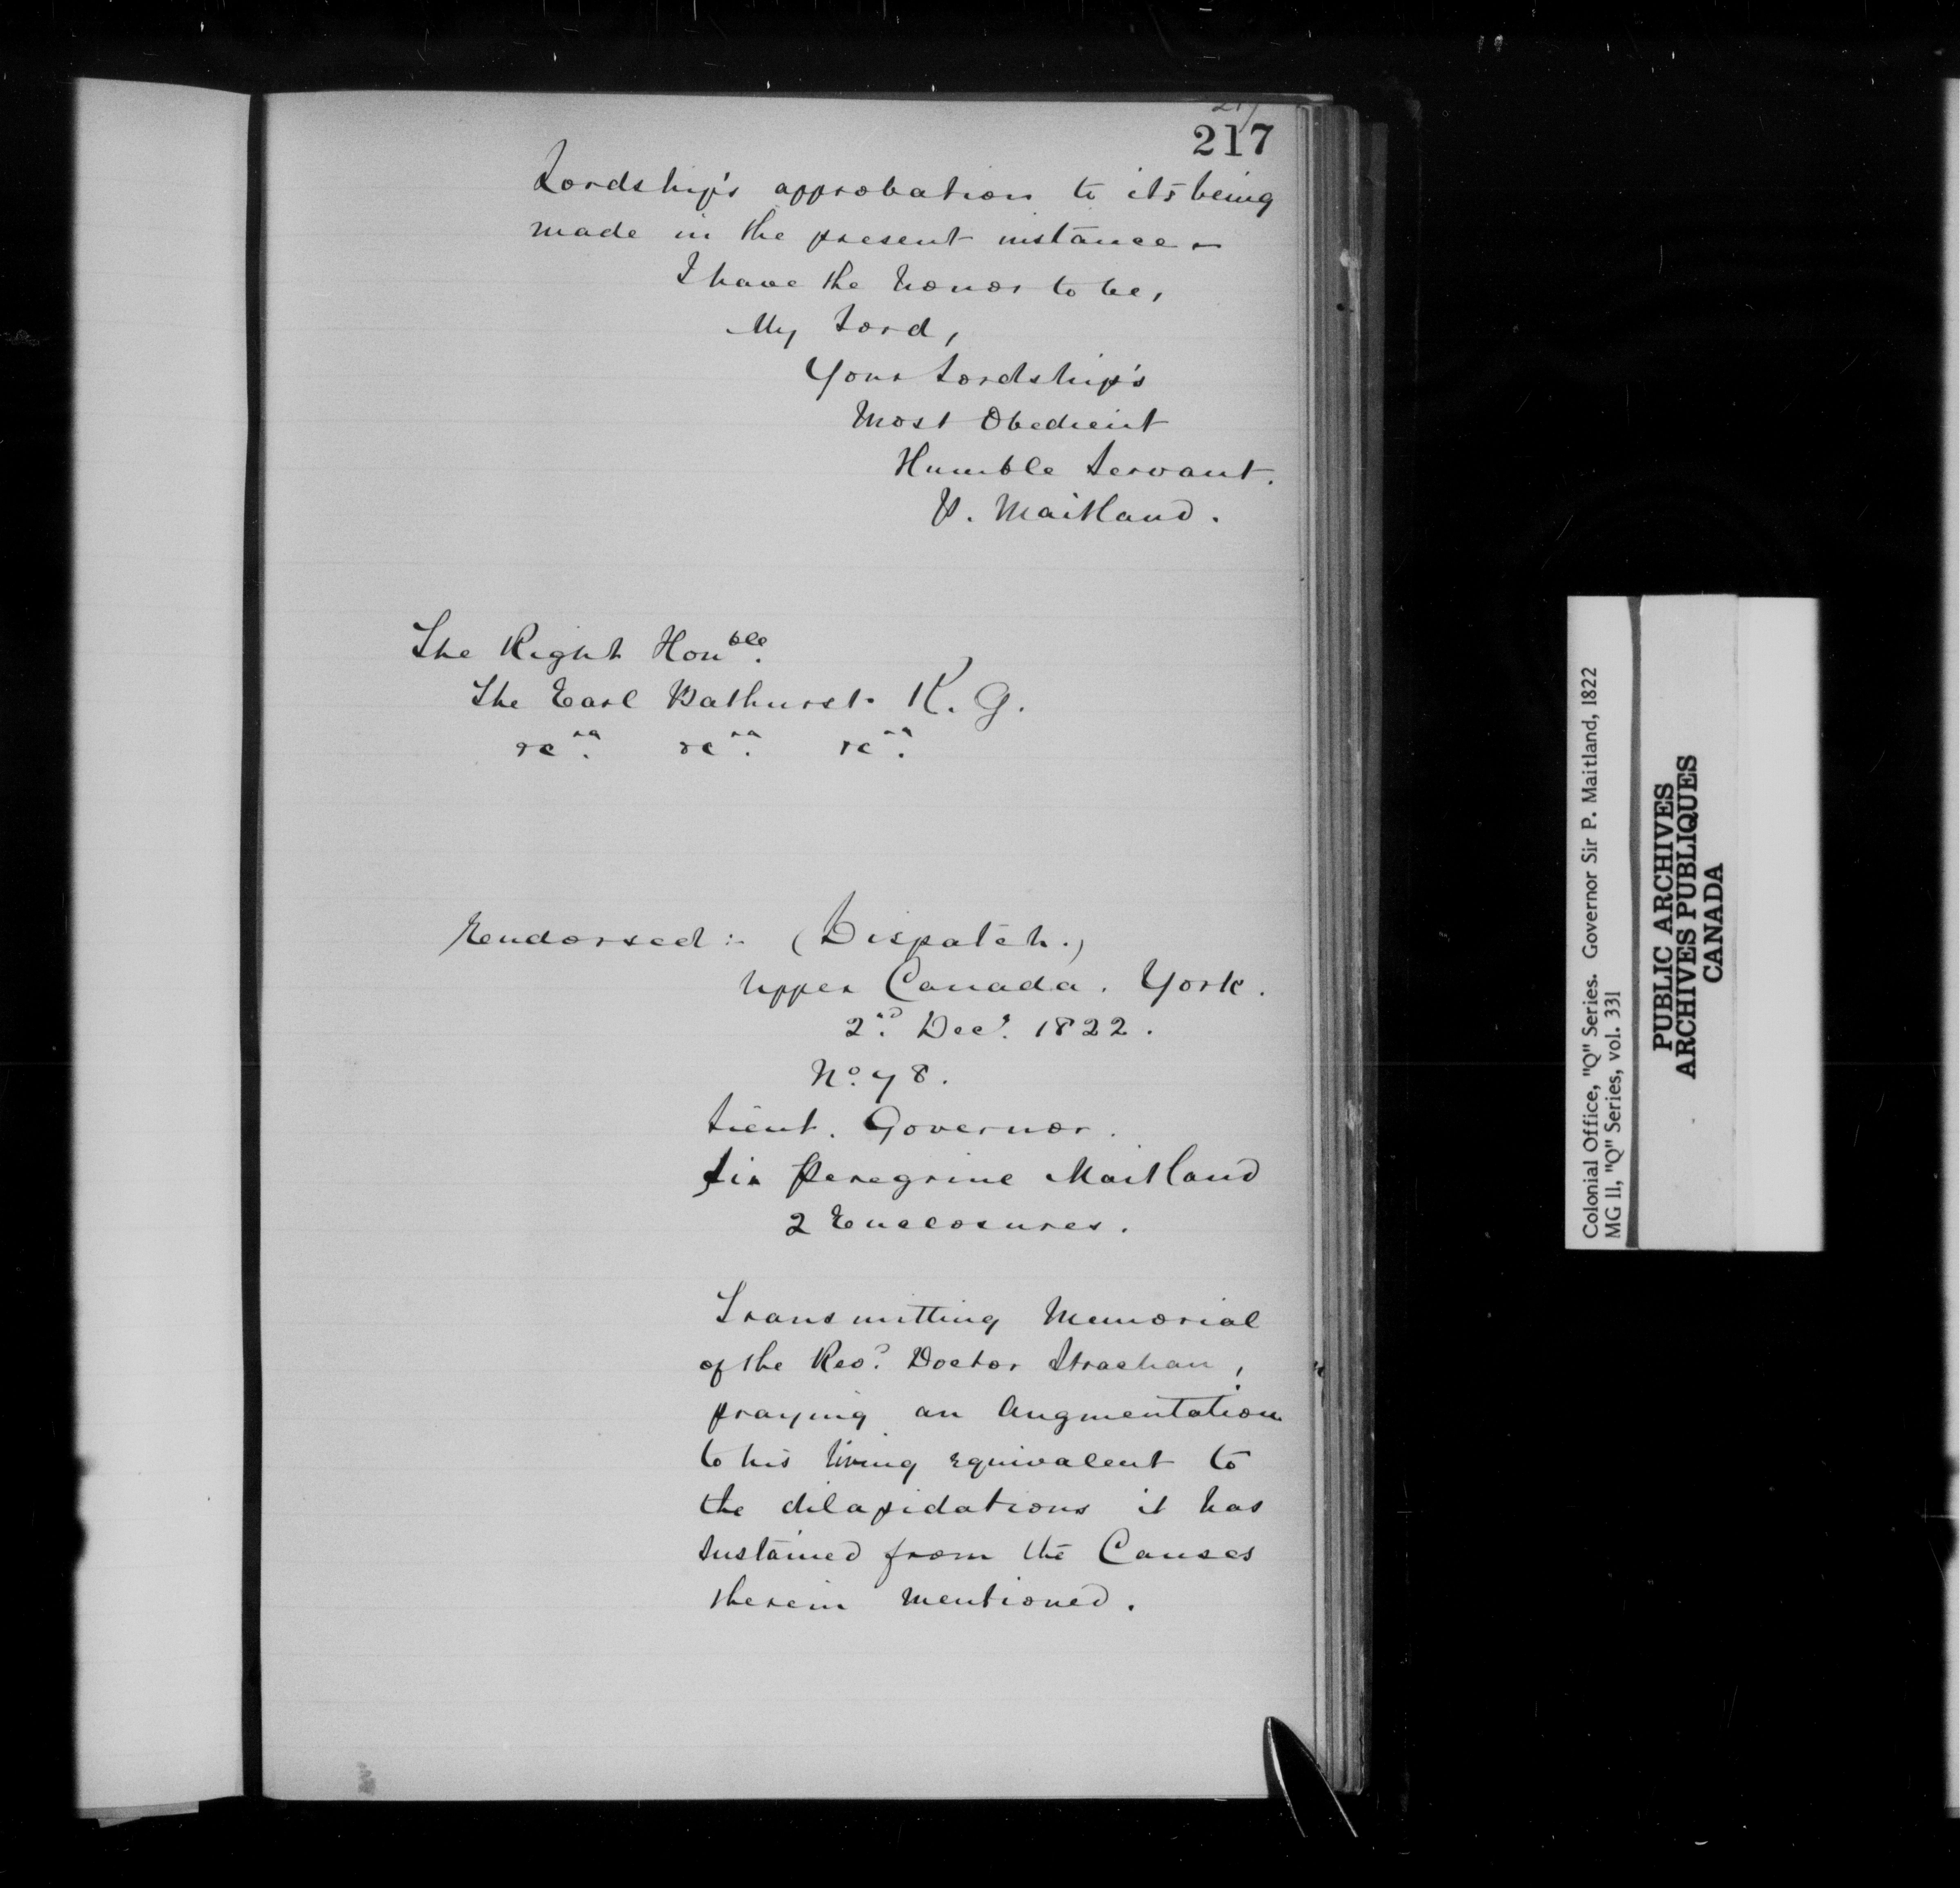 217
217
Lordship's approbation to its being
made in the present instance –
I have the honor to be,
My Lord,
Your Lordship's
Most Obedient
Humble Servant.
P. Maitland.
The Right Honble.
The Earl Bathurst. K. G.
&ca. &ca. &ca.
Endorsed :- (Dispatch.)
Upper Canada. York.
2nd. Decr. 1822.
No. 78.
Lieut. Governor.
Sir Peregrine Maitland
2 Enclosures.
Transmitting Memorial
of the Revd. Doctor Strachan,
praying an Augmentation
to his living equivalent to
the dilapidations it has
sustained from the Causes
therein mentioned.
Colonial Office, "Q" Series. Governor Sir P. Maitland, 1822
MG 11, "Q" Series, vol. 331
PUBLIC ARCHIVES
ARCHIVES PUBLIQUES
CANADA